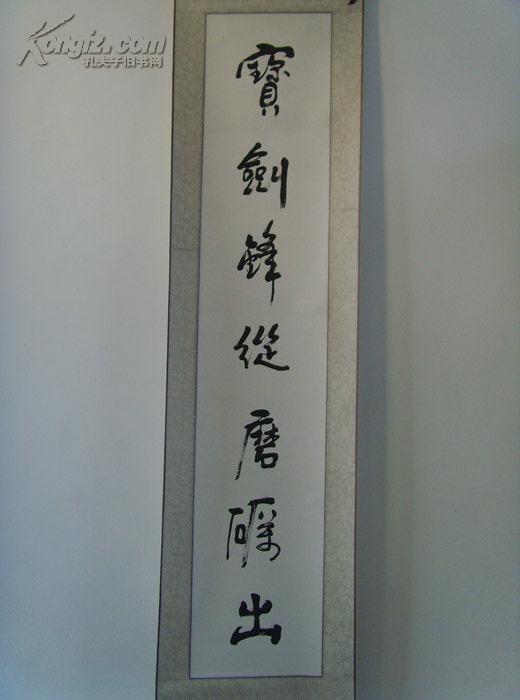 Kongfz.com
孔夫子旧书网
寶劍鋒從磨礪出